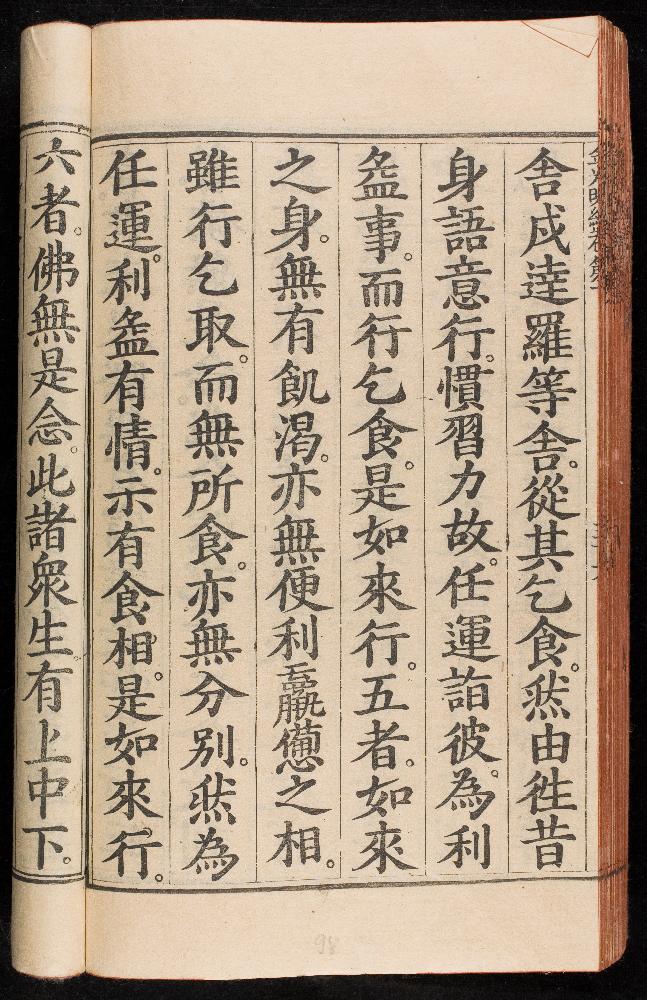 舍戍達羅等舍。從其乞食。然由徃昔
身語意行。慣習力故。任運詣彼。為利
益事。而行乞食。是如來行。五者。如來
之身。無有飢渴。亦無便利羸憊之相。
雖行乞取。而無所食。亦無分别。然為
任運。利益有情。示有食相。是如來行。
六者。佛無是念。此諸衆生有上中下。
98